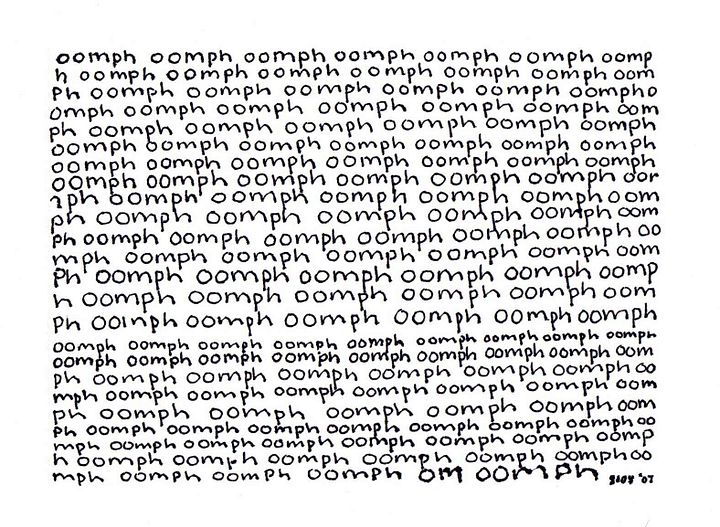 oomph oomph oomph oomph oomph oomph oomp
h oomph oomph oomph oomph oomph oomph oom
ph oomph oomph oomph oomph oomph oompho
omph oomph oomph oomph oomph oomph oom
ph oomph oomph oomph oomph oomph oomph
oomph oomph oomph oomph oomph oomph oomph
oomph oomph oomph oomph oomph oomph oomph
oomph oomph oomph oomph oomph oomph oor
ıph oomph oomph oomph oomph oomph oom
ph oomph oomph oomph oomph oomph oom
ph oomph oomph oomph oomph oomph oomph oo
mph oomph oomph oomph oomph oomph oom
ph oomph oomph oomph oomph oomph oomp
h oomph oomph oomph oomph oomph oom
ph ooinph oomph oomph oomph oomph oomph
oomph oomph oomph oomph oomph oomph oomph oomph oomph
oomph oomph oomph oomph oomph oomph oomph oomph oom
ph oomph oomph oomph oomph oomph oomph oo
mph oomph oomph oomph oomph oomph oomph oom
ph oomph oomph oomph oomph oomph oom
ph oomph oomph oomph oomph oomph oomph oomph oo
mph oomph oomph oomph oomph oomph oomph oomp
h oomph oomph oomph oomph oomph oomph oo
mph oomph oomph oomph om oomph